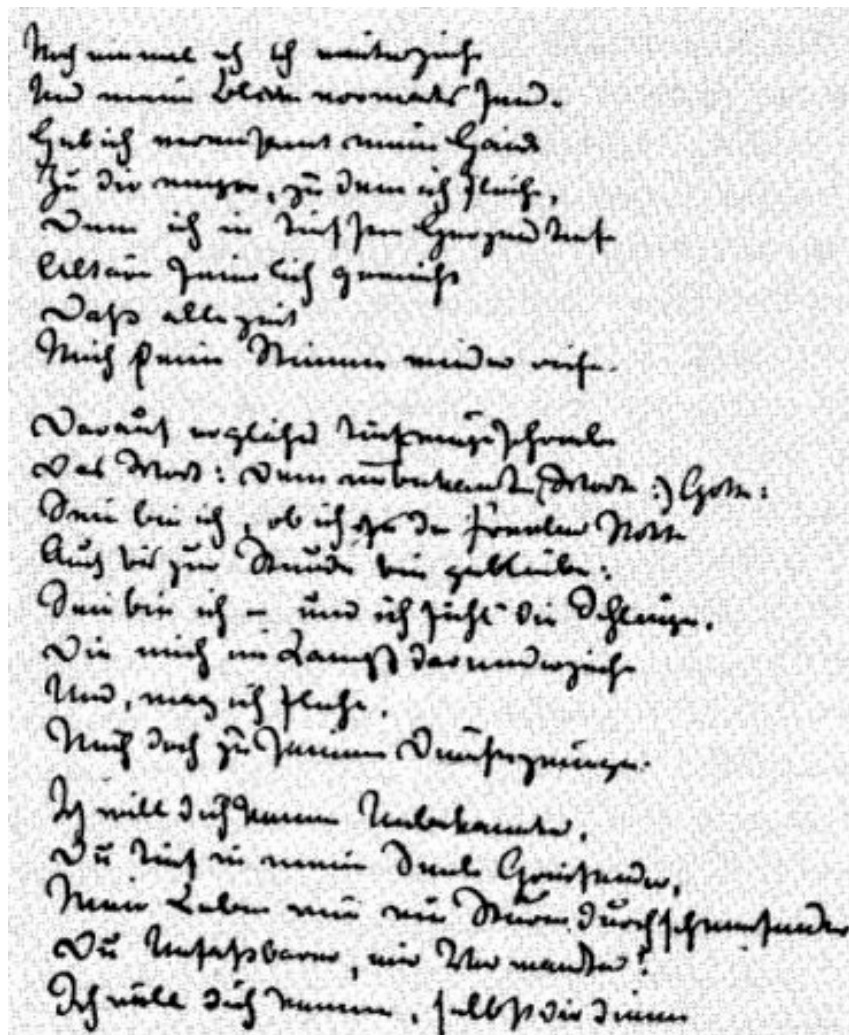 Noch einmal eh ich weiterziehe
Und meine Blicke vorwärts sende
Heb ich vereinsamt meine Hände
Zu dir empor, zu dem ich fliehe,
Dem ich in tiefster Herzenstiefe
Altäre feierlich geweiht
Daß allezeit
Mich deine Stimme wieder riefe.
Darauf erglühet tiefeingeschrieben
Das Wort: Dem unbekannten Gotte:
Sein bin ich, ob ich der Frevler Rotte
Auch bis zur Stunde bin geblieben:
Sein bin ich – und ich fühl' die Schlingen,
Die mich im Kampf darniederziehn
Und, mag ich fliehn,
Mich doch zu seinem Dienste zwingen.
Ich will dich kennen Unbekannter,
Du tief in meine Seele Greifender,
Mein Leben wie ein Sturm durchschweifender
Du Unfaßbarer, mir Verwandter!
Ich will dich kennen, selbst dir dienen